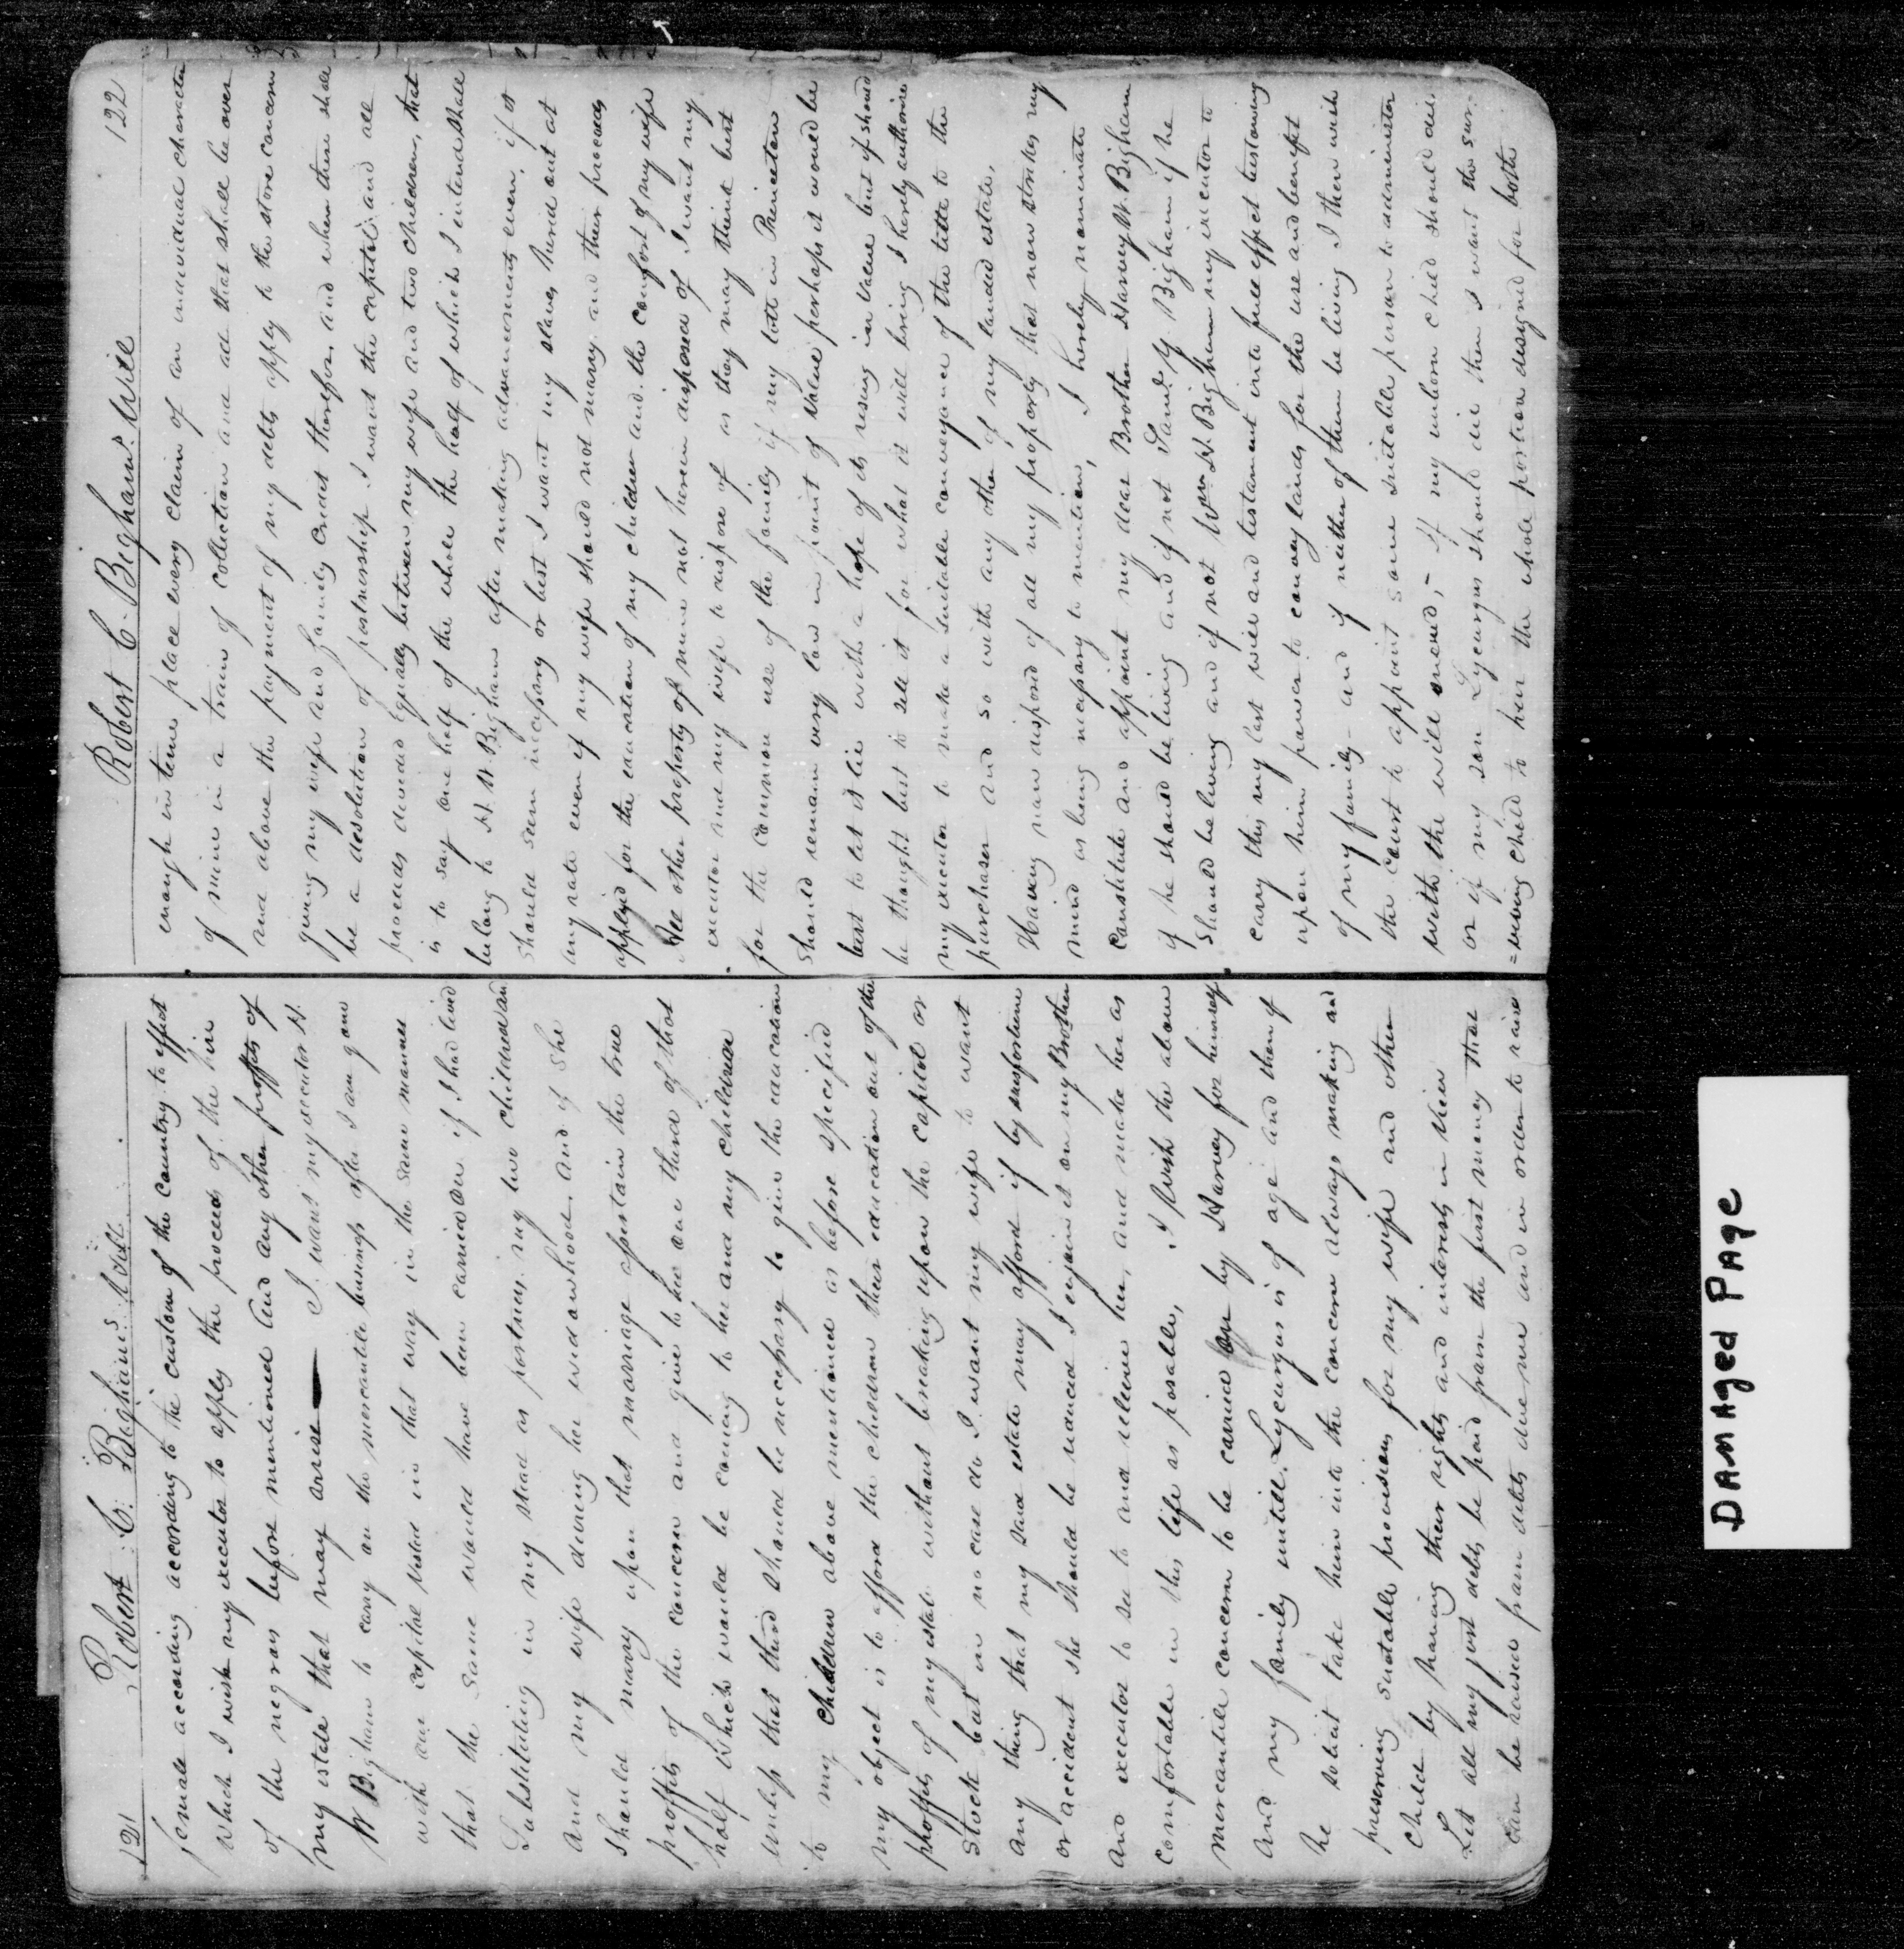 121 Robert C. Bighams Will
female according according to the custom of the country to effect
which I wish my executor to apply the proceed of the hire
of the negroes before mentioned and any other proffits of
my estate that may arise — I want my executor H.
W Bigham to carry on the mercantile business after I am gone
with our capital vested in that way in the same manner
that the same would have been carried on if I had lived
Substituting in my stead as partners, my two children and
and my wife during her widowhood. and if she
should marry upon that marriage assertain the true
proffits of the concern and give to her one third of that
half which would be coming to her and my children
unless that third should be necessary to give the education
to my children above mentioned as before specified
my object is to afford the children their education out of the
proffits of my estate without breaking upon the capital or
Stock but in no case do I want my wife to want
any thing that my said estate may afford if by misfortune
or accident she should be reduced I enjoin it on my Brother
and executor to see to and relieve her, and make her as
comfortable in this life as posable, I wish the above
mercantile concern to be carried on by Harvey for himself
and my family untill Lycurgus is of age and then if
he solicit take him into the concern always making and
preserving suitable provisions for my wife and other
child by having their rights and interests in view
Let all my just debts be paid from the first money that
can be raised from debts due me and in order to raise
Robert C. Bighams Will 122
enough in time place every claim of an individual character
of mine in a train of collection and all that shall be over
and above the payment of my debts apply to the store concern
giving my wife and family credit therefor. and when there shall
be a desolution of partnership I want the capital and all
proceeds divided Equally between my wife and two children, that
is to say one half of the whole the half of which I intend shall
belong to H. W. Bigham after making advancements even, if it
should seem necessary or best I want my slaves hired out at
any rate even if my wife should not marry. and their proceeds
applyed for the education of my children and the comfort of my wife
All other property of mine not herein disposed of I want my
executor and my wife to dispose of as they may think best
for the common use of the family if my lott in Princeton
should remain very low in point of value perhaps it would be
best to let it lie with a hope of its rising in value but if should
be thought best to sell it for what it will bring I hereby authorise
my executor to make a suitable conveyance of the title to the
purchaser and so with any other of my landed estate,
Having now disposed of all my property that now strikes my
mind as being necessary to mention, I hereby nominate
Constitute and appoint my dear Brother Harvey W. Bigham
if he should be living and if not Saml Y Bigham if he
should be living and if not Wm H. Bigham my executor to
carry this my last will and testament into full effect bestowing
upon him power to convey lands for the use and benefit
of my family – and if neither of them be living I then wish
the Court to appoint some suitable person to administer
with the will anexed, – If my unborn child should die
or if my son Lycurgus should die then I want the sur-
=viving child to heir the whole portion designed for both
DAMAged PAge